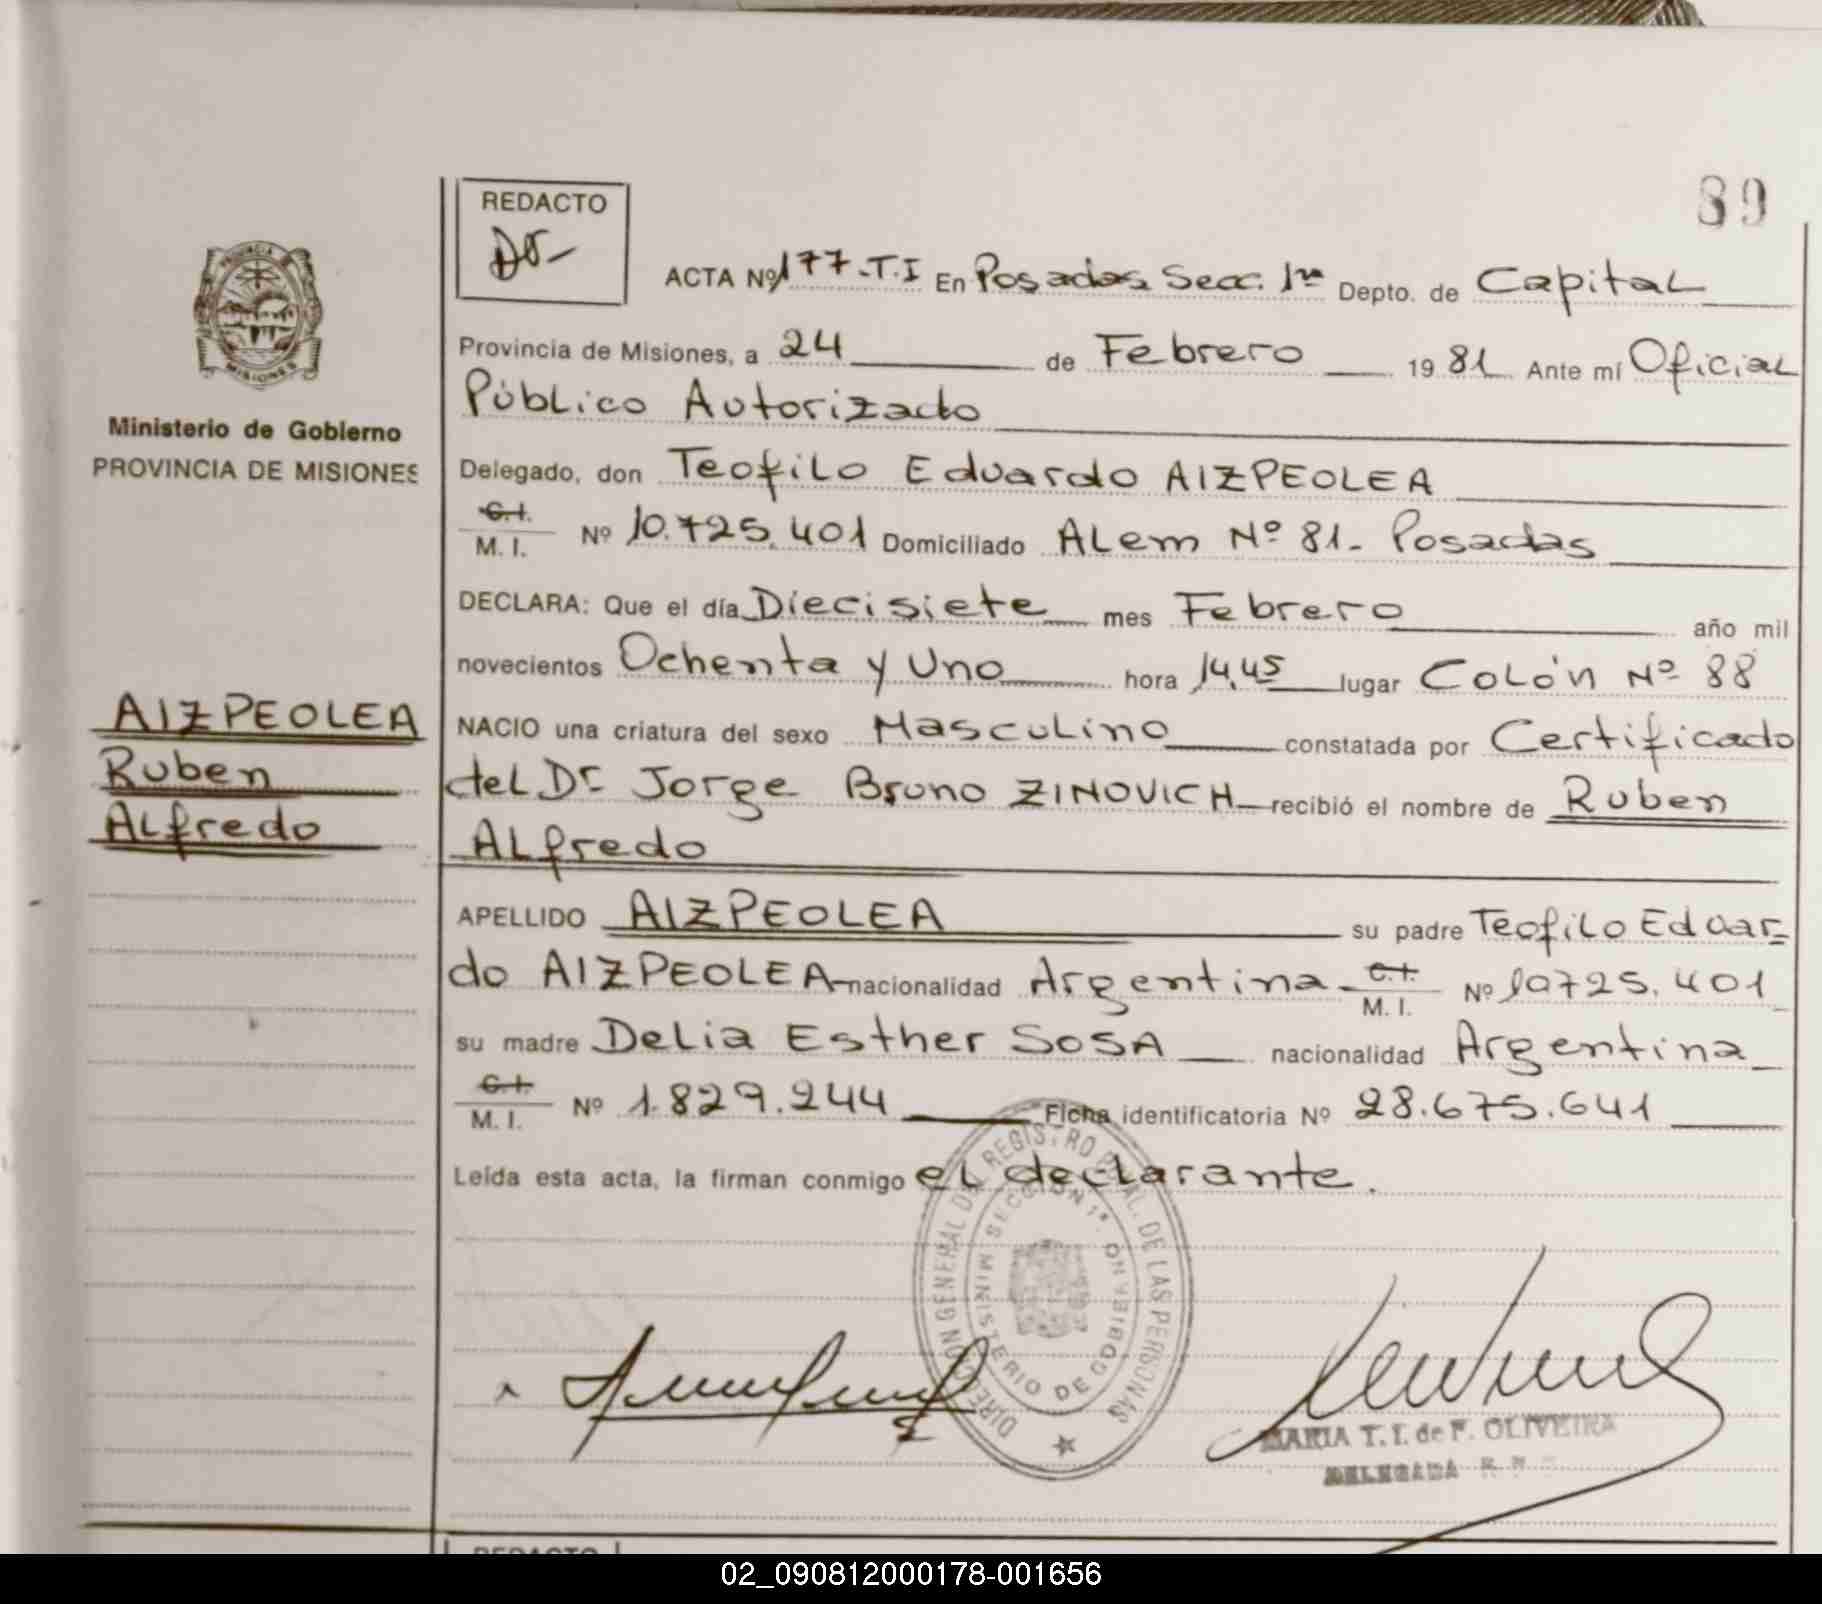 89
REDACTO
ACTA Nº 177-T.I En Posadas Secc. 1ra Depto. de Capital
Provincia de Misiones, a 24 de Febrero 1981 Ante mí Oficial
Público Autorizado
Ministerio de Gobierno
PROVINCIA DE MISIONES
Delegado, don Teofilo Eduardo AIZPEOLEA
C.I.
M. I. Nº 10.725.401 Domiciliado Alem Nº 81- Posadas
DECLARA: Que el día Diecisiete mes Febrero año mil
novecientos Ochenta y Uno hora 14,45 lugar Colón Nº 88
AIZPEOLEA
Ruben
Alfredo
NACIO una criatura del sexo Masculino constatada por Certificado
del Dr Jorge Bruno ZINOVICH recibió el nombre de Ruben
Alfredo
APELLIDO AIZPEOLEA su padre Teofilo Eduar-
do AIZPEOLEA nacionalidad Argentina C.I. M. I. Nº 10725.401
su madre Delia Esther SOSA nacionalidad Argentina
C.I.
M. I. Nº 1.829.244 Ficha identificatoria Nº 28.675.641
Leída esta acta, la firman conmigo el declarante.
DIRECCION GENERAL DEL REGISTRO PCIAL. DE LAS PERSONAS
SECCION 1ª
MINISTERIO DE GOBIERNO
MARIA T. I. de F. OLIVEIRA
DELEGADA
REDACTO
02_090812000178-001656